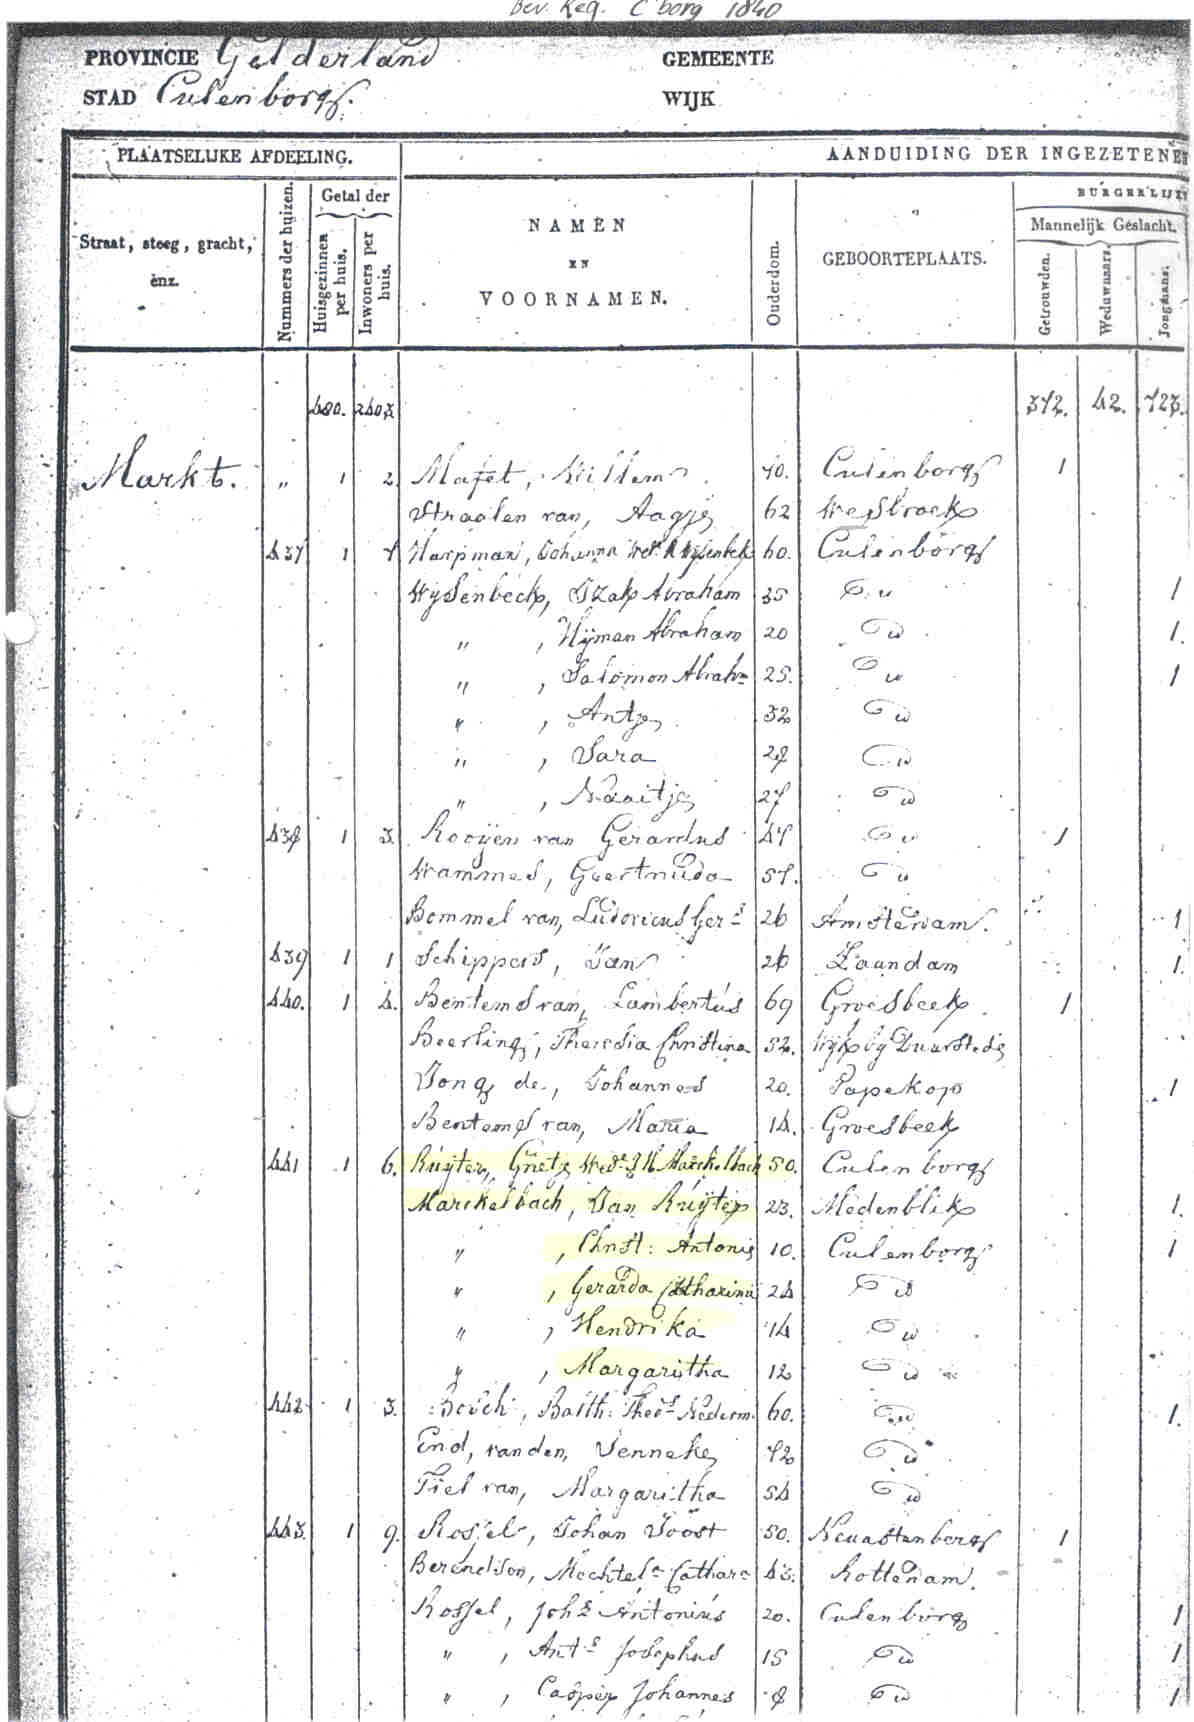 Bev. Reg. C'borg 1840
PROVINCIE Gelderland GEMEENTE
STAD Culenborg. WIJK
PLAATSELIJKE AFDEELING. AANDUIDING DER INGEZETENEN
Straat, steeg, gracht, enz. Nummers der huizen. Getal der Huisgezinnen per huis. Inwoners per huis. NAMEN EN VOORNAMEN. Ouderdom. GEBOORTEPLAATS. BURGERLIJKE
Mannelijk Geslacht. Getrouwden. Weduwnaars. Jongmans.
480. 2403 372. 42. 723.
Markt. „ 1 2 Mafet, Willem 40. Culenborg 1
Straalen van, Aagje 62 Westbroek
437 1 7 Harpman, Johanna Wed. Wijsenbek 60. Culenborg
Wijsenbeek, Izak Abraham 35 do 1
„ , Hijman Abraham 20 do 1.
„ , Salomon Abrahm 25. do 1
„ , Antje 32 do
„ , Sara 28 do
„ , Naaitje 27 do
438 1 3. Rooijen van Gerardus 47 do 1
Wammes, Geertruida 57. do
Bommel van, Ludovicus Gers 26 Amsterdam. 1
439 1 1 Schippers, Jan 26 Zaandam 1.
440. 1 4. Bentems van, Lambertus 69 Groesbeek 1
Beerling, Theresia Christina 52. Wijk bij Duurstede
Jong de, Johannes 20. Papekop 1
Bentems van, Maria 14. Groesbeek
441 1 6. Ruijter, Grietje Wede J H Marckelbach 50. Culenborg
Marckelbach, Jan Ruijter 23. Medenblik 1.
„ , Christ: Antonie 10. Culenborg 1
„ , Gerarda Catharina 24 do
„ , Hendrika 14 do
„ , Margaritha 12 do
442 1 3. Bosch, Barth: Theos Nederm. 60. do 1.
End, van den, Jenneke 72 do
Tiel van, Margaritha 54 do
443. 1 9. Rossel, Johan Joost 50. Neuastenberg 1
Berendson, Mechtela Cathara 43. Rotterdam.
Rossel, Johs Antonius 20. Culenborg 1
„ , Ants Josephus 15 do 1
„ , Casper Johannes 8 do 1